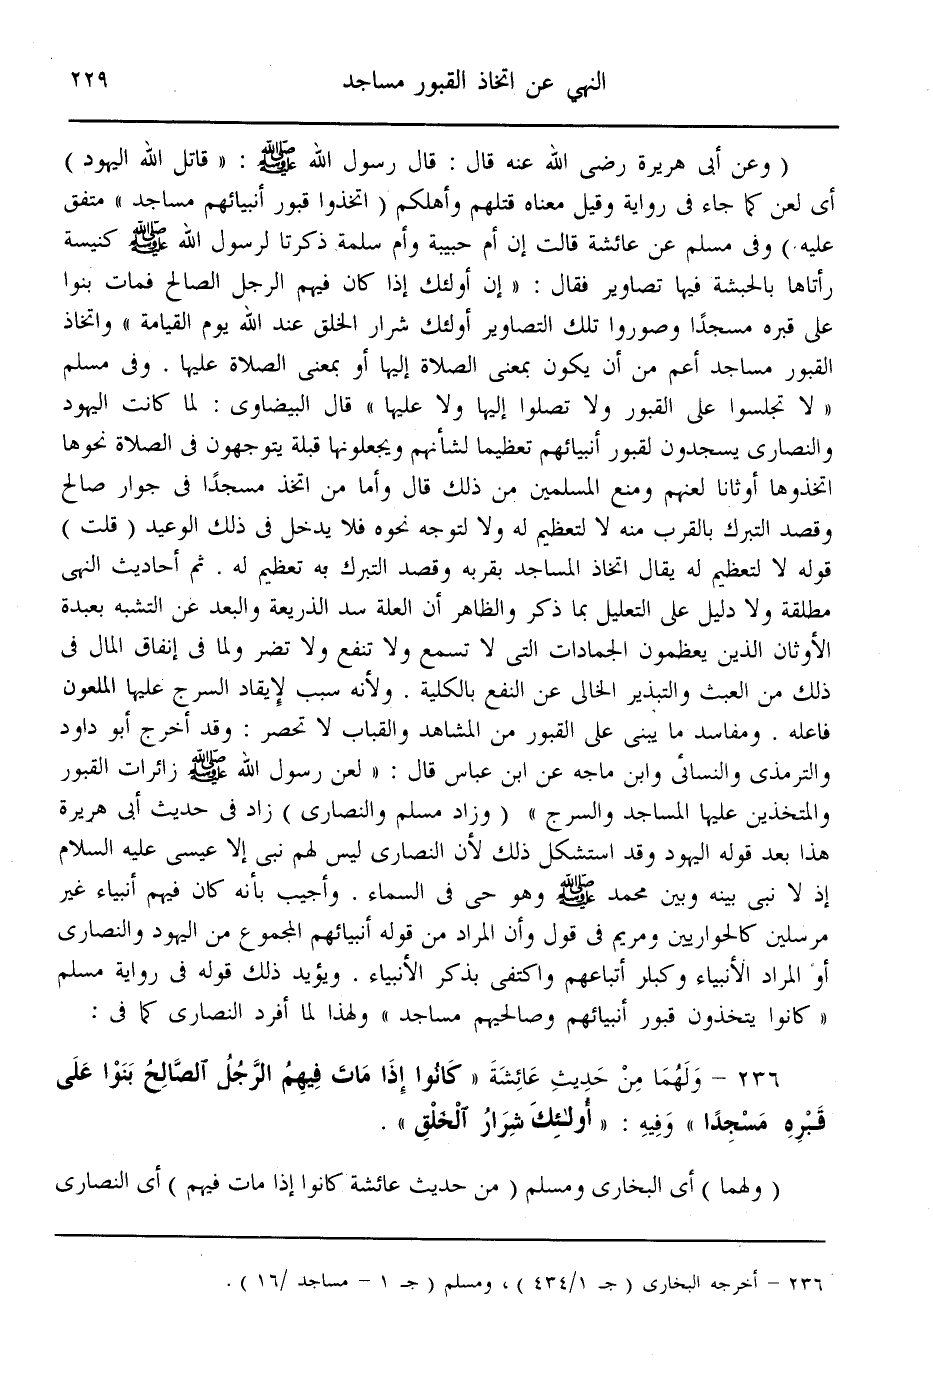 النهي عن اتخاذ القبور مساجد ٢٢٩
( وعن أبى هريرة رضى الله عنه قال : قال رسول الله ﷺ : « قاتل الله اليهود )
أى لعن كما جاء فى رواية وقيل معناه قتلهم وأهلكم ( اتخذوا قبور أنبيائهم مساجد » متفق
عليه ) وفى مسلم عن عائشة قالت إن أم حبيبة وأم سلمة ذكرتا لرسول الله ﷺ كنيسة
رأتاها بالحبشة فيها تصاوير فقال : « إن أولئك إذا كان فيهم الرجل الصالح فمات بنوا
على قبره مسجدًا وصوروا تلك التصاوير أولئك شرار الخلق عند الله يوم القيامة » واتخاذ
القبور مساجد أعم من أن يكون بمعنى الصلاة إليها أو بمعنى الصلاة عليها . وفى مسلم
« لا تجلسوا على القبور ولا تصلوا إليها ولا عليها » قال البيضاوى : لما كانت اليهود
والنصارى يسجدون لقبور أنبيائهم تعظيما لشأنهم ويجعلونها قبلة يتوجهون فى الصلاة نحوها
اتخذوها أوثانا لعنهم ومنع المسلمين من ذلك قال وأما من اتخذ مسجدًا فى جوار صالح
وقصد التبرك بالقرب منه لا لتعظيم له ولا لتوجه نحوه فلا يدخل فى ذلك الوعيد ( قلت )
قوله لا لتعظيم له يقال اتخاذ المساجد بقربه وقصد التبرك به تعظيم له . ثم أحاديث النهى
مطلقة ولا دليل على التعليل بما ذكر والظاهر أن العلة سد الذريعة والبعد عن التشبه بعبدة
الأوثان الذين يعظمون الجمادات التى لا تسمع ولا تنفع ولا تضر ولما فى إنفاق المال فى
ذلك من العبث والتبذير الخالى عن النفع بالكلية . ولأنه سبب لإيقاد السرج عليها الملعون
فاعله . ومفاسد ما يبنى على القبور من المشاهد والقباب لا تحصر : وقد أخرج أبو داود
والترمذى والنسائى وابن ماجه عن ابن عباس قال : « لعن رسول الله ﷺ زائرات القبور
والمتخذين عليها المساجد والسرج » ( وزاد مسلم والنصارى ) زاد فى حديث أبى هريرة
هذا بعد قوله اليهود وقد استشكل ذلك لأن النصارى ليس لهم نبى إلا عيسى عليه السلام
إذ لا نبى بينه وبين محمد ﷺ وهو حى فى السماء . وأجيب بأنه كان فيهم أنبياء غير
مرسلين كالحواريين ومريم فى قول وأن المراد من قوله أنبيائهم المجموع من اليهود والنصارى
أو المراد الأنبياء وكبلر أتباعهم واكتفى بذكر الأنبياء . ويؤيد ذلك قوله فى رواية مسلم
« كانوا يتخذون قبور أنبيائهم وصالحيهم مساجد » ولهذا لما أفرد النصارى كما فى :
٢٣٦ – وَلَهُمَا مِنْ حَدِيثِ عَائِشَةَ « كَانُوا إِذَا مَاتَ فِيهِمُ الرَّجُلُ الصَّالِحُ بَنَوْا عَلَى
قَبْرِهِ مَسْجِدًا » وَفِيهِ : « أُولٰئِكَ شِرَارُ الْخَلْقِ » .
( ولهما ) أى البخارى ومسلم ( من حديث عائشة كانوا إذا مات فيهم ) أى النصارى
٢٣٦ – أخرجه البخارى ( جـ ٤٣٤/١ ) ، ومسلم ( جـ ١ – مساجد /١٦ ) .